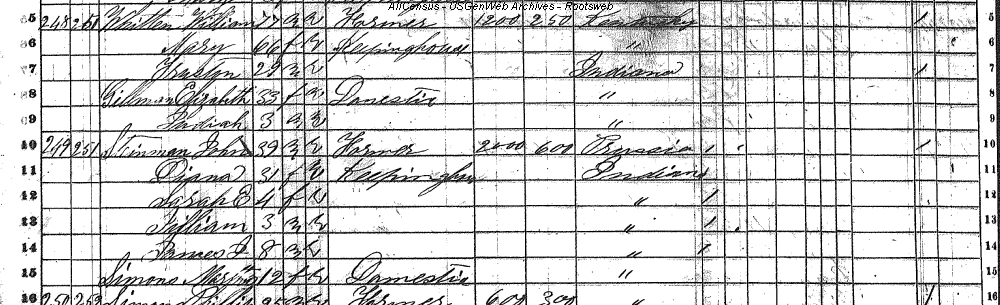 AllCensus - USGenWeb Archives - Rootsweb
5 248 251 Whitten William 77 m W Farmer 1200 250 Kentucky 1 5
6 Mary 66 f W Keeping house " 6
7 29 m W Indiana 1 7
8 Gillman Elizabeth 33 f W Domestic " 8
9 3 m W " 9
10 249 251 Stinman John 39 m W Farmer 2000 600 Prussia 1 1 10
11 Diana 31 f W Keeping house Indiana 11
12 Sarah E 4 f W " 1 12
13 William 3 m W " 1 13
14 James 8 m W 1 14
15 Simons 12 f W Domestic " 15
250 252 Farmer 600 300 " 1 16